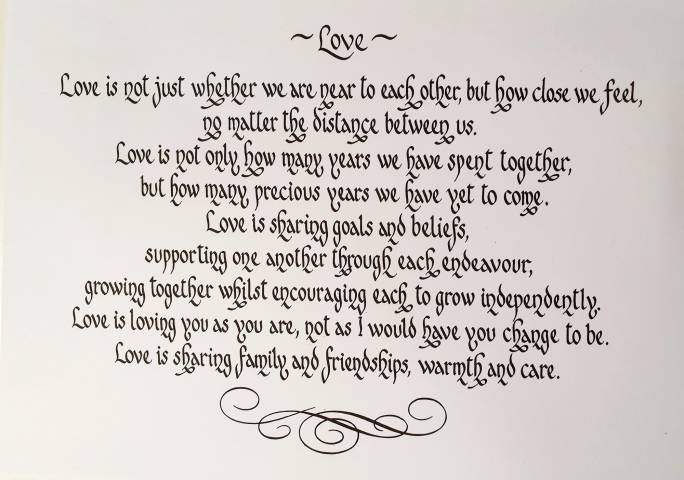 ~ Love ~
Love is not just whether we are near to each other, but how close we feel,
no matter the distance between us.
Love is not only how many years we have spent together,
but how many precious years we have yet to come.
Love is sharing goals and beliefs,
supporting one another through each endeavour,
growing together whilst encouraging each to grow independently.
Love is loving you as you are, not as I would have you change to be.
Love is sharing family and friendships, warmth and care.